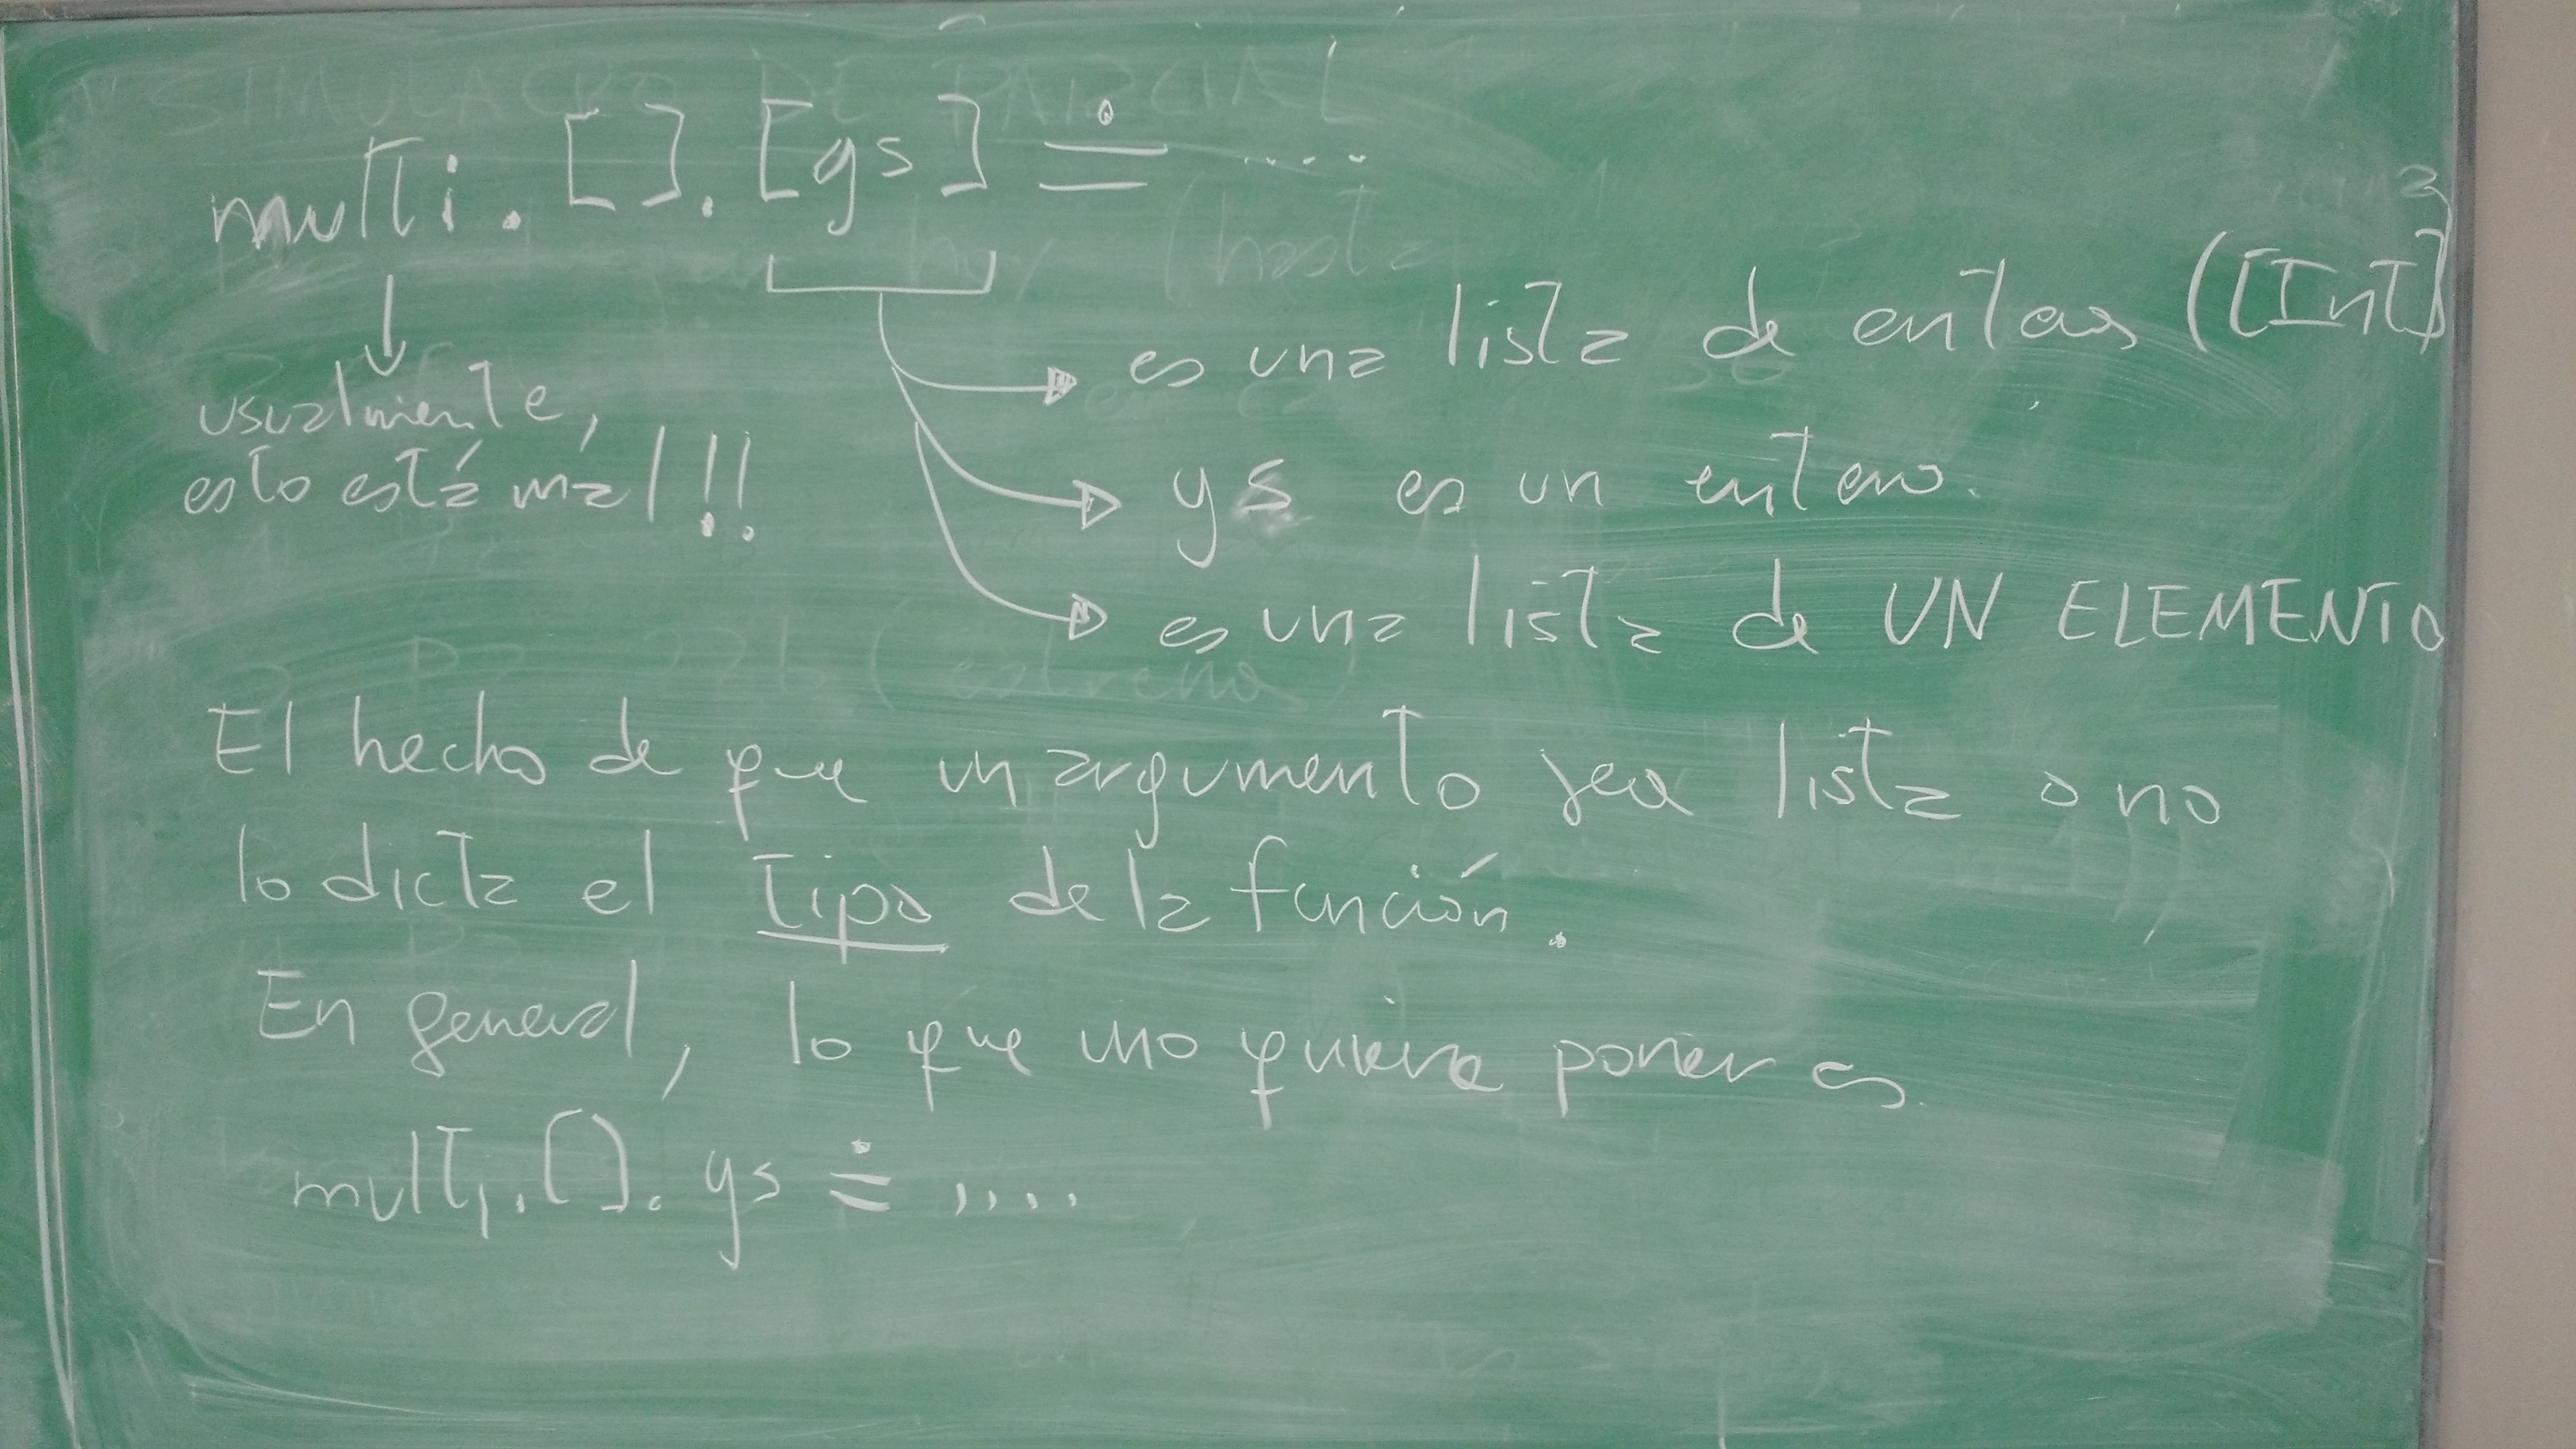 SIMULACRO DE PARCIAL
multi.[].[ys] ≐ ....
(hasta
es una lista de enteros ([Int]
usualmente,
está mal!!
esto
ys es un entero.
es una lista de UN ELEMENTO
(estreno)
El hecho de que un argumento sea lista o no
lo dicta el tipo de la función.
En general, lo que uno quiere poner es
multi.[].ys ≐ ....